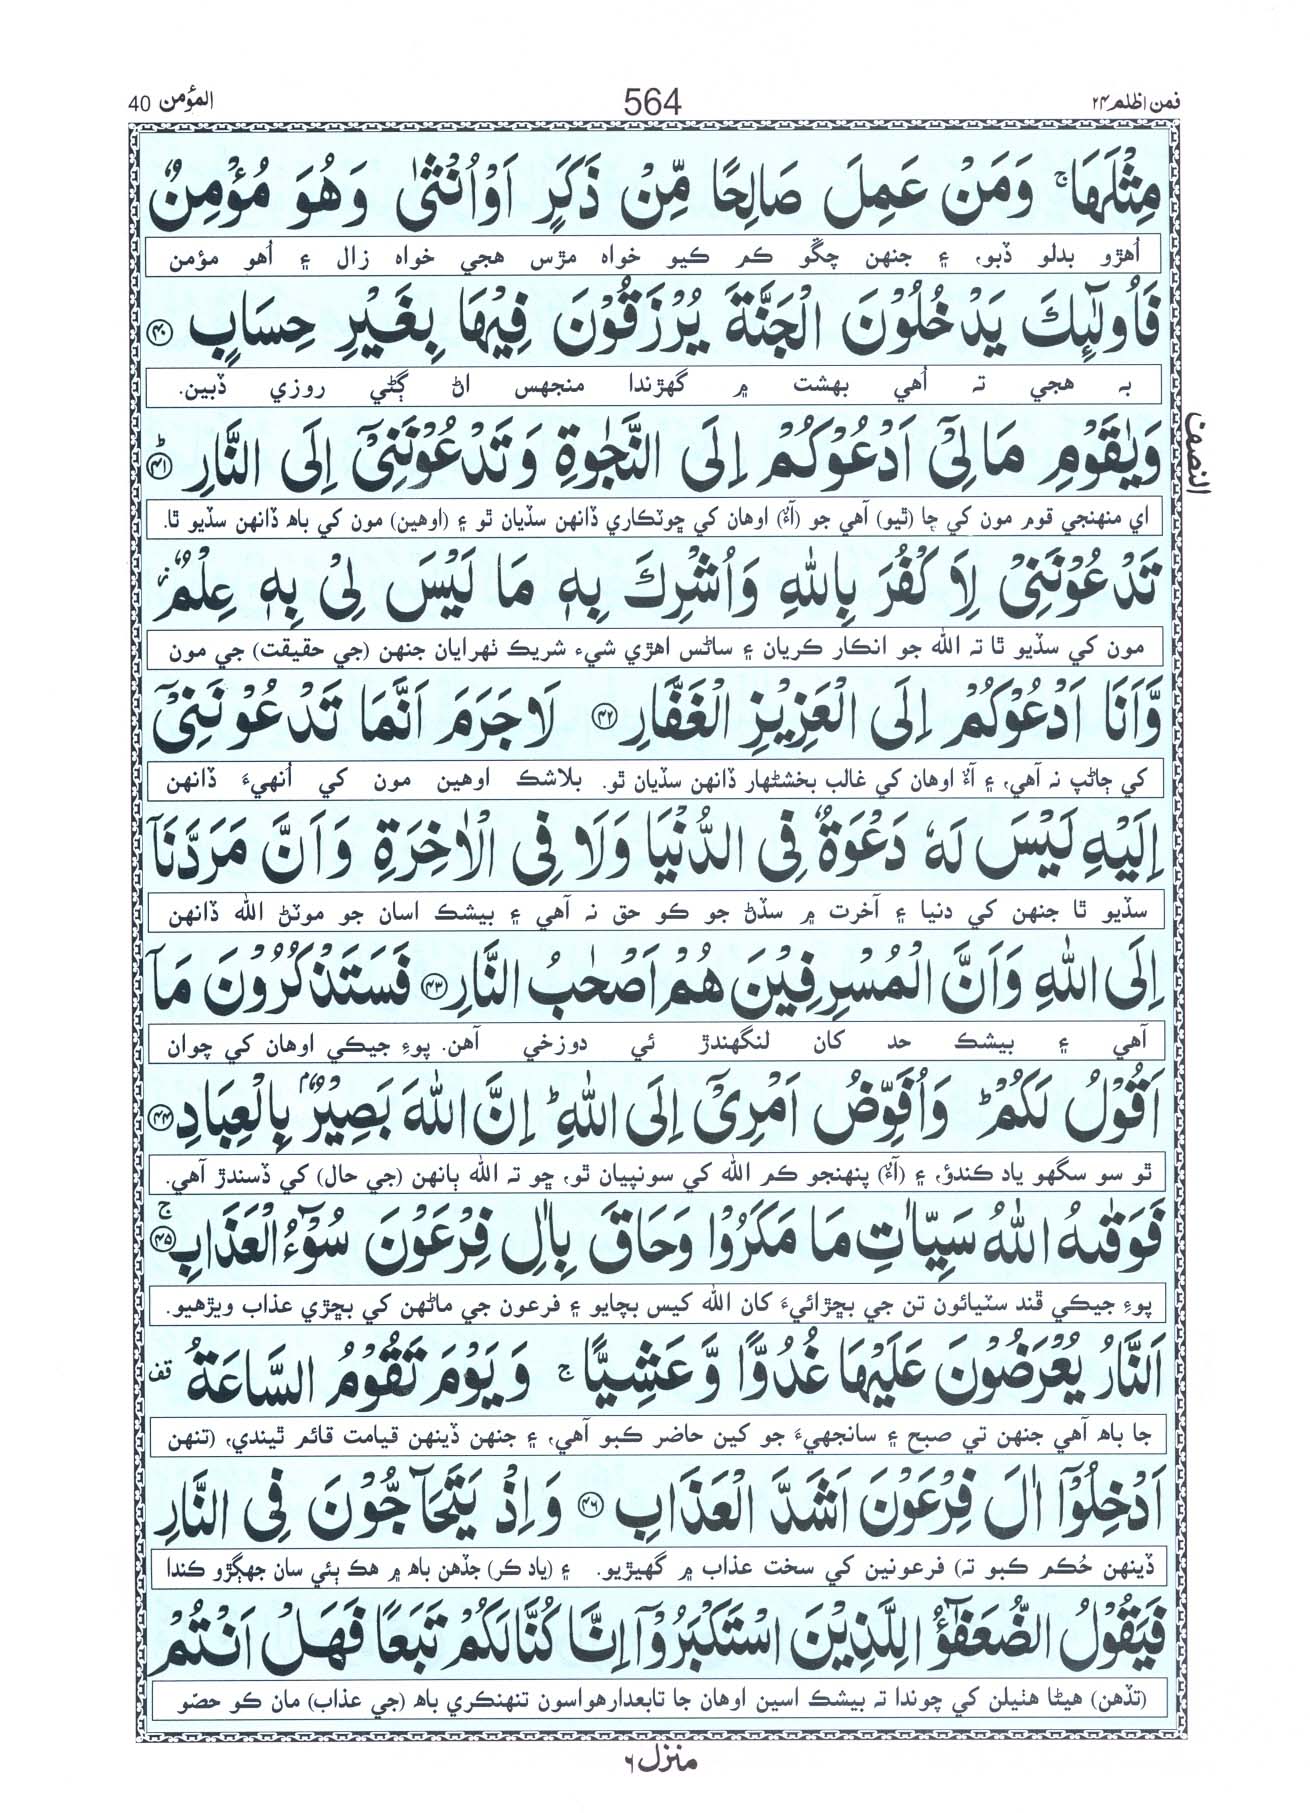 فمن اظلم ۲۴ 564 المؤمن 40
مِثْلَهَا ۚ وَمَنْ عَمِلَ صَالِحًا مِّنْ ذَكَرٍ اَوْ اُنْثٰى وَهُوَ مُؤْمِنٌ
اُهڙو بدلو ڏبو، ۽ جنهن چڱو ڪم ڪيو خواه مڙس هجي خواه زال ۽ اُهو مؤمن
فَاُولٰٓئِكَ يَدْخُلُوْنَ الْجَنَّةَ يُرْزَقُوْنَ فِيْهَا بِغَيْرِ حِسَابٍ ۴۰
بہ هجي تہ اُهي بهشت ۾ گهڙندا منجهس اڻ ڳڻي روزي ڏبين.
النصف
وَيٰقَوْمِ مَالِىْٓ اَدْعُوْكُمْ اِلَى النَّجٰوةِ وَتَدْعُوْنَنِىْٓ اِلَى النَّارِ ؕ ۴۱
اي منهنجي قوم مون کي ڇا (ٿيو) آهي جو (آءٌ) اوهان کي ڇوٽڪاري ڏانهن سڏيان ٿو ۽ (اوهين) مون کي باه ڏانهن سڏيو ٿا.
تَدْعُوْنَنِىْ لِاَكْفُرَ بِاللهِ وَاُشْرِكَ بِهٖ مَا لَيْسَ لِىْ بِهٖ عِلْمٌ ز
مون کي سڏيو ٿا تہ الله جو انڪار ڪريان ۽ ساڻس اهڙي شيء شريڪ ٺهرايان جنهن (جي حقيقت) جي مون
وَّاَنَا اَدْعُوْكُمْ اِلَى الْعَزِيْزِ الْغَفَّارِ ۴۲ لَاجَرَمَ اَنَّمَا تَدْعُوْنَنِىْٓ
کي ڄاڻپ نہ آهي، ۽ آءٌ اوهان کي غالب بخشڻهار ڏانهن سڏيان ٿو. بلاشڪ اوهين مون کي اُنهيءَ ڏانهن
اِلَيْهِ لَيْسَ لَهٗ دَعْوَةٌ فِى الدُّنْيَا وَلَا فِى الْاٰخِرَةِ وَاَنَّ مَرَدَّنَآ
سڏيو ٿا جنهن کي دنيا ۽ آخرت ۾ سڏڻ جو ڪو حق نہ آهي ۽ بيشڪ اسان جو موٽڻ الله ڏانهن
اِلَى اللهِ وَاَنَّ الْمُسْرِفِيْنَ هُمْ اَصْحٰبُ النَّارِ ۴۳ فَسَتَذْكُرُوْنَ مَآ
آهي ۽ بيشڪ حد کان لنگهندڙ ئي دوزخي آهن. پوءِ جيڪي اوهان کي چوان
اَقُوْلُ لَكُمْ ؕ وَاُفَوِّضُ اَمْرِىْٓ اِلَى اللهِ ؕ اِنَّ اللهَ بَصِيْرٌۢ بِالْعِبَادِ ۴۴
ٿو سو سگهو ياد ڪندؤ، ۽ (آءٌ) پنهنجو ڪم الله کي سونپيان ٿو، ڇو تہ الله ٻانهن (جي حال) کي ڏسندڙ آهي.
فَوَقٰىهُ اللهُ سَيِّاٰتِ مَا مَكَرُوْا وَحَاقَ بِاٰلِ فِرْعَوْنَ سُوْٓءُ الْعَذَابِ ج ۴۵
پوءِ جيڪي ڦند سٽيائون تن جي بڇڙائيءَ کان الله کيس بچايو ۽ فرعون جي ماڻهن کي بڇڙي عذاب ويڙهيو.
اَلنَّارُ يُعْرَضُوْنَ عَلَيْهَا غُدُوًّا وَّعَشِيًّا ۚ وَيَوْمَ تَقُوْمُ السَّاعَةُ قف
جا باه آهي جنهن تي صبح ۽ سانجهيءَ جو کين حاضر ڪبو آهي، ۽ جنهن ڏينهن قيامت قائم ٿيندي، (تنهن
اَدْخِلُوْٓا اٰلَ فِرْعَوْنَ اَشَدَّ الْعَذَابِ ۴۶ وَاِذْ يَتَحَآجُّوْنَ فِى النَّارِ
ڏينهن حُڪم ڪبو تہ) فرعونين کي سخت عذاب ۾ گهيڙيو. ۽ (ياد ڪر) جڏهن باه ۾ هڪ ٻئي سان جهڳڙو ڪندا
فَيَقُوْلُ الضُّعَفٰٓؤُا لِلَّذِيْنَ اسْتَكْبَرُوْٓا اِنَّا كُنَّا لَكُمْ تَبَعًا فَهَلْ اَنْتُمْ
(تڏهن) هيڻا هٺيلن کي چوندا تہ بيشڪ اسين اوهان جا تابعدار هواسون تنهنڪري باه (جي عذاب) مان ڪو حصّو
منزل ۶